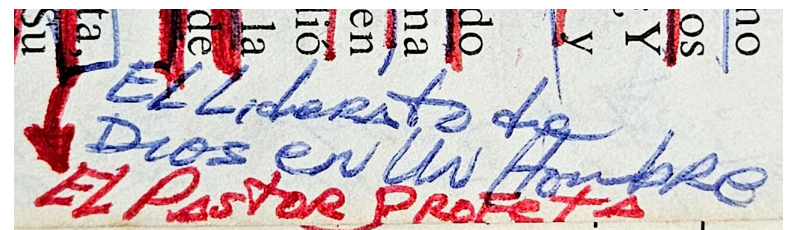 su
ta,
de
la
lió
en
na
do
y
Y
os
no
El Liderato de
Dios en un Hombre
El Pastor Profeta